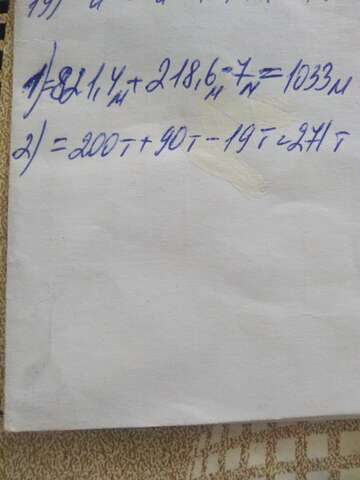 1) = 821,4м + 218,6м - 7м = 1033м
2) = 200т + 90т - 19т = 271т